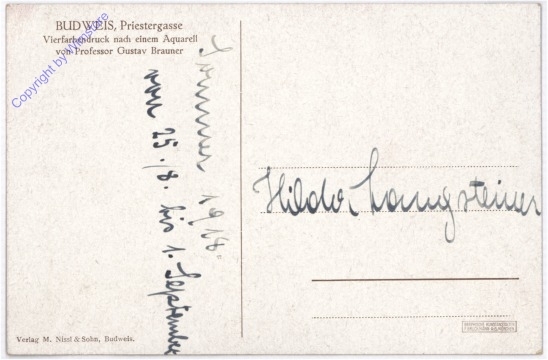 BUDWEIS, Priestergasse
Vierfarbendruck nach einem Aquarell
von Professor Gustav Brauner
Sommer 1918.
vom 25./8. bis 1. September
Hilda Langsteiner
Verlag M. Nissl & Sohn, Budweis.